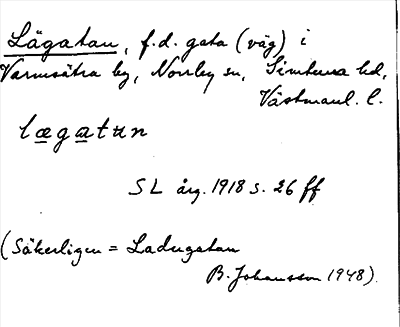 Lägatan, f.d. gata (väg) i
Varmsätra by, Norrby sn, Simtuna hd,
Västmanl. l.
lægatun
SL årg. 1918 s. 26 ff
(Säkerligen = Ladugatan
B. Johansson 1948).